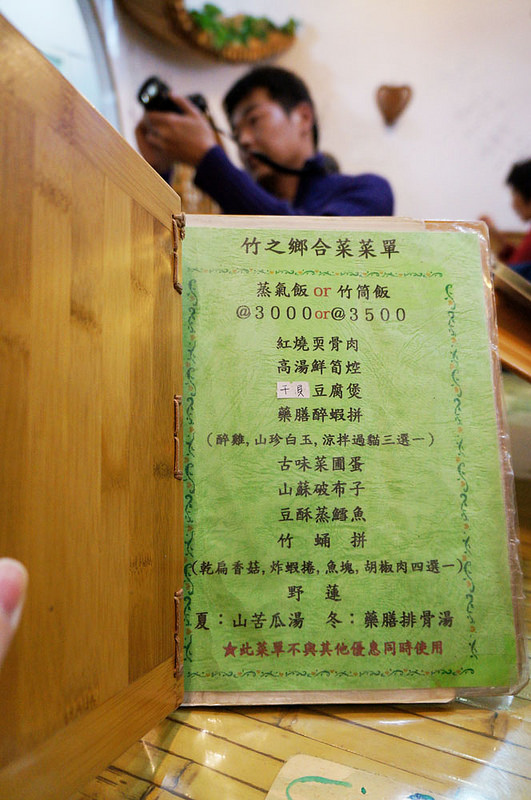 竹之鄉合菜菜單
蒸氣飯 or 竹筒飯
@3000or@3500
紅燒㽔骨肉
高湯鮮筍焢
干貝豆腐煲
藥膳醉蝦拼
(醉雞,山珍白玉,涼拌過貓三選一)
古味菜圃蛋
山蘇破布子
豆酥蒸鱈魚
竹蛹拼
(乾扁香菇,炸蝦捲,魚塊,胡椒肉四選一)
野蓮
夏:山苦瓜湯 冬:藥膳排骨湯
★此菜單不與其他優惠同時使用